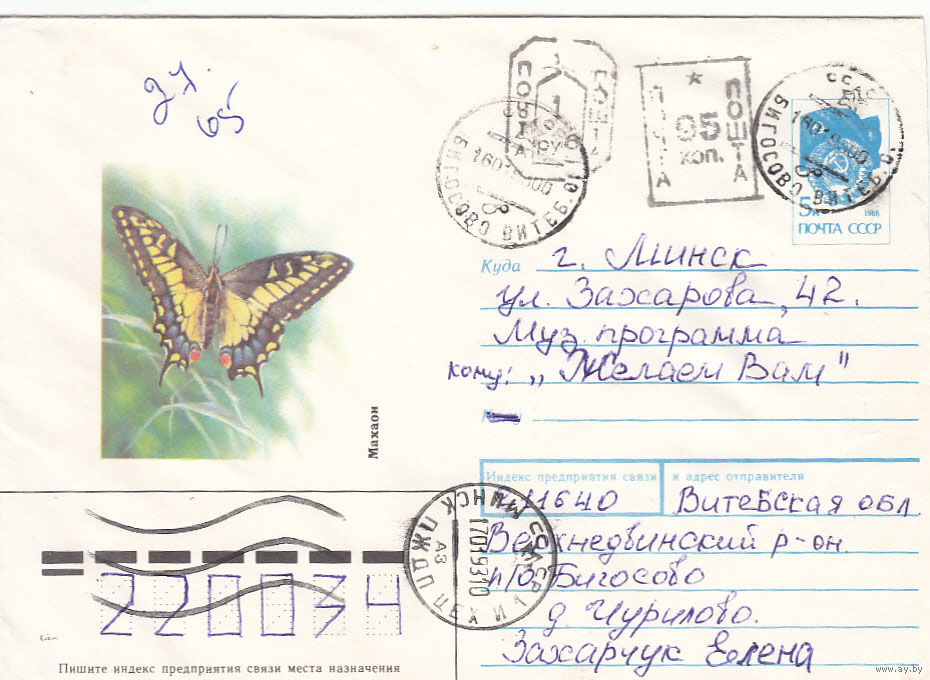 27.
65
ПОШТА
ПОЧТА
95
коп.
БИГОСОВО ВИТЕБ. О.
БИГОСОВО ВИТЕБ.
5к
1988
ПОЧТА СССР
Куда г. Минск
ул. Захарова, 42.
Муз. программа
кому: „Желаем Вам"
Махаон
Индекс предприятия связи и адрес отправителя
211640 Витебская обл
Верхнедвинский р-он.
п/о Бигосово
д Чурилово.
Захарчук Елена
МИНСК ПЖДП ЦЕХ
АЗ
17019310
220034
Пишите индекс предприятия связи места назначения
www.ay.by